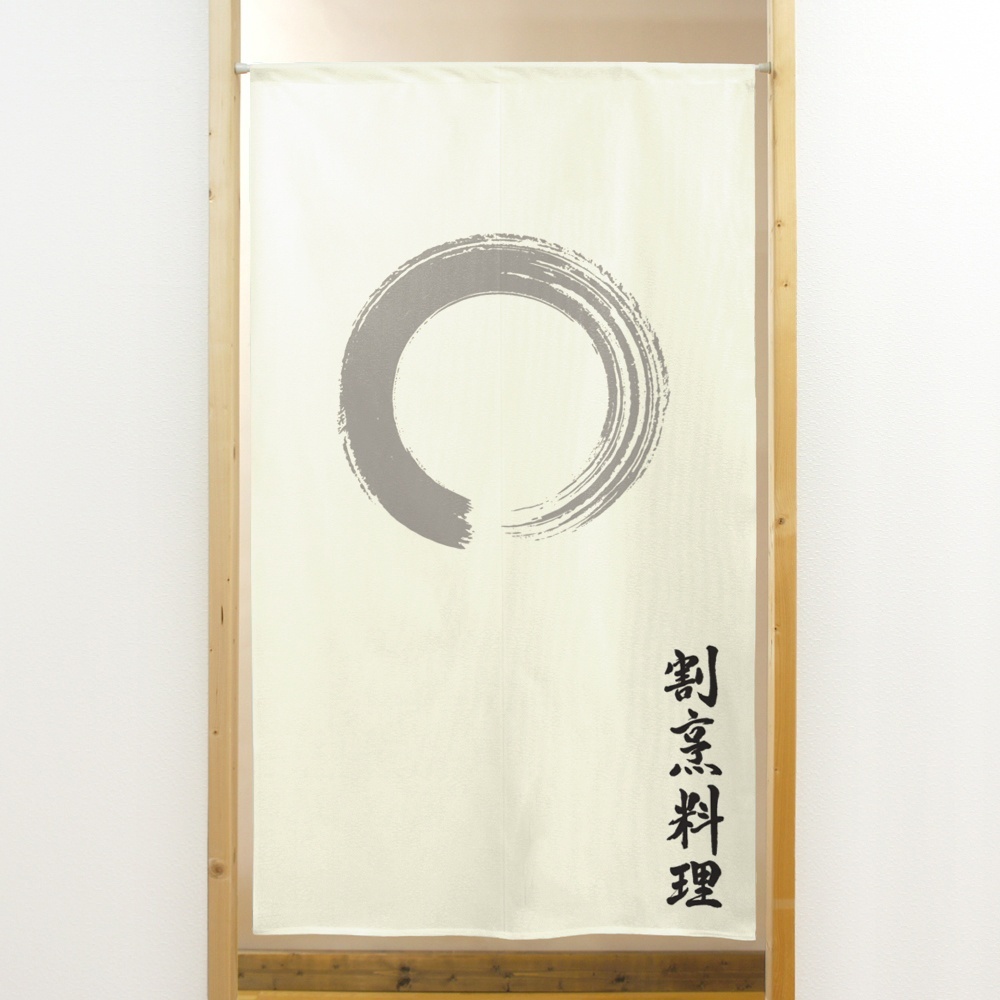 割烹料理